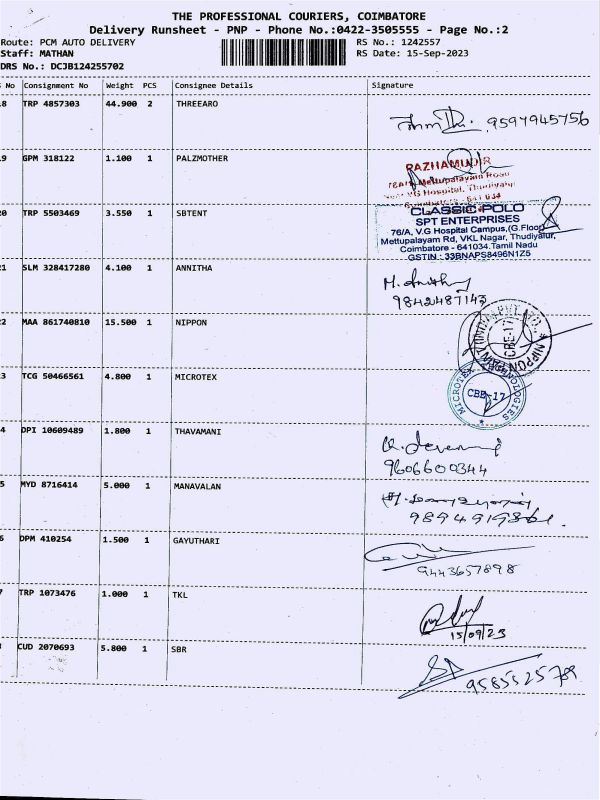 THE PROFESSIONAL COURIERS, COIMBATORE
Delivery Runsheet - PNP - Phone No.:0422-3505555 - Page No.:2
Route: PCM AUTO DELIVERY RS No.: 1242557
Staff: MATHAN RS Date: 15-Sep-2023
DRS No.: DCJB124255702
No Consignment No Weight PCS Consignee Details Signature
8 TRP 4857303 44.900 2 THREEARO
9597945756
9 GPM 318122 1.100 1 PALZMOTHER
PAZHAMUDIR
Mettupalayam Road
V.G Hospital, Thudiyalur
0 TRP 5503469 3.550 1 SBTENT
CLASSIC POLO
SPT ENTERPRISES
76/A, V.G Hospital Campus,(G.Floor)
Mettupalayam Rd, VKL Nagar, Thudiyalur,
Coimbatore - 641034.Tamil Nadu
GSTIN : 33BNAPS8496N1Z5
1 SLM 328417280 4.100 1 ANNITHA
9842487143
2 MAA 861740810 15.500 1 NIPPON
NIPPON
CBE-17
3 TCG 50466561 4.800 1 MICROTEX
MICROTEX TECHNOLOGIES
CBE-17
4 DPI 10609489 1.800 1 THAVAMANI
9606600344
5 MYD 8716414 5.000 1 MANAVALAN
6 DPM 410254 1.500 1 GAYUTHARI
9443657898
7 TRP 1073476 1.000 1 TKL
15/09/23
CUD 2070693 5.800 1 SBR
9585525789